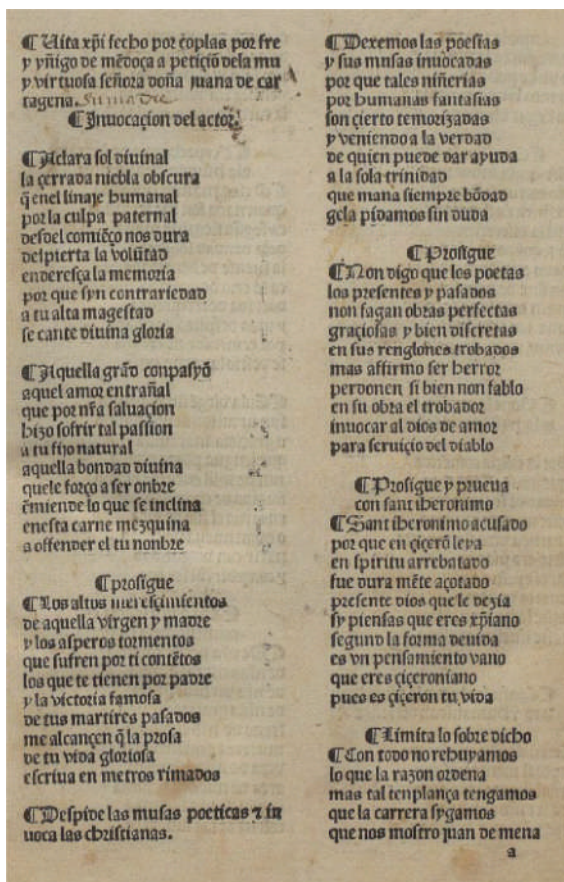 ¶ Uita xp̄i fecho por coplas por fre
y yñigo de mēdoça a petiçiō dela mu
y virtuosa señora doña juana de car
tagena. su madre
¶ Inuocaçion del actor.
¶ Aclara sol diuinal
la çerrada niebla obscura
q̄ enel linaje humanal
por la culpa paternal
desdel comiēço nos dura
despierta la volūtad
enderesça la memoria
por que syn contrariedad
a tu alta magestad
se cante diuina gloria
¶ Aquella grād conpasyō
aquel amor entrañal
que por nr̄a saluaçion
hizo sofrir tal passion
a tu fijo natural
aquella bondad diuina
quele forço a ser onbre
ēmiende lo que se inclina
enesta carne mezquina
a offender el tu nonbre
¶ prosigue
¶ Los altos meresçimientos
de aquella virgen y madre
y los asperos tormentos
que sufren por ti contētos
los que te tienen por padre
y la victoria famosa
de tus martires pasados
me alcançen q̄ la prosa
de tu vida gloriosa
escriua en metros rimados
¶ Despide las musas poeticas ⁊ in
uoca las christianas.
¶ Dexemos las poesias
y sus musas inuocadas
por que tales niñerias
por humanas fantasias
son çierto temorizadas
y veniendo a la verdad
de quien puede dar ayuda
a la sola trinidad
que mana siempre bōdad
gela pidamos sin duda
¶ Prosigue
¶ Non digo que los poetas
los presentes y pasados
non fagan obras perfectas
graçiosas y bien discretas
en sus renglones trobados
mas affirmo ser herror
perdonen si bien non fablo
en su obra el trobador
inuocar al dios de amor
para seruiçio del diablo
¶ Prosigue y prueua
con sant iheronimo
¶ Sant iheronimo acusado
por que en çiçerō leya
en spiritu arrebatado
fue dura mēte açotado
presente dios que le dezia
sy piensas que eres xp̄iano
segund la forma deuida
es vn pensamiento vano
que eres çiçeroniano
pues es çiçeron tu vida
¶ Limita lo sobre dicho
¶ Con todo no rehuyamos
lo que la razon ordena
mas tal tenplança tengamos
que la carrera sygamos
que nos mostro juan de mena
a